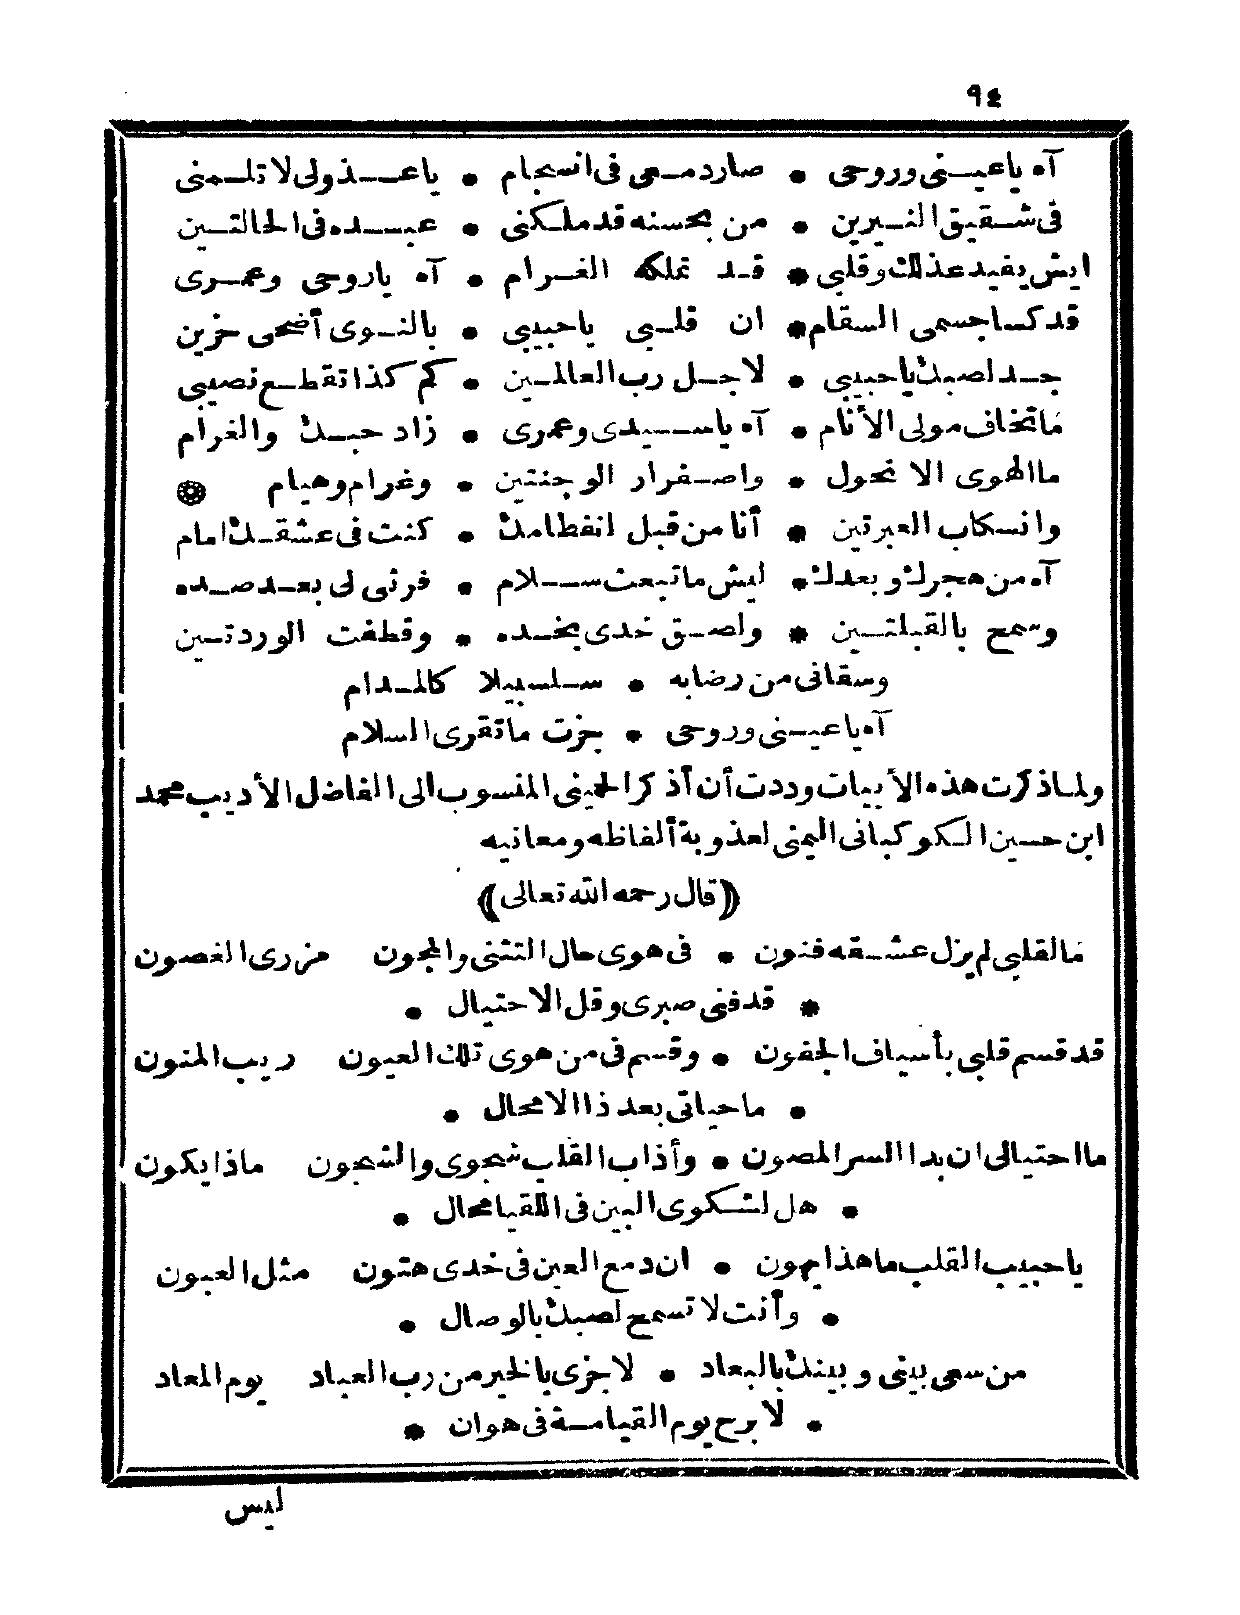 ٩٤
آه ياعيـنى وروحى * صاردمـعى فى انسجام * ياعـــذولى لا تلـمنى
فى شـقيق النـيرين * من بحسنه قد ملـكنى * عبـــده فى الحالتـين
ايش يفيد عذلك وقلبى * قـد تملكه الغـرام * آه ياروحى وعمـرى
قد كسا جسمى السقام * ان قلـبى ياحبيبى * بالنـوى أضحى حزين
جـد لصبك ياحبيبى * لاجـل رب العالمـين * كم كذا تقطـع نصيبى
ما تخاف مولى الأنام * آه ياســيدى وعمرى * زاد حبـك والغرام
ما الهوى الا نحول * واصـفرار الوجنتين * وغرام وهيام
وانسكاب العبرتين * أنا من قبل انفطامك * كنت فى عشقـك امام
آه من هجرك وبعدك * ليش ما تبعث ســلام * فرثى لى بعـد صـده
وسمح بالقبلتـين * ولصـق خدى بخـده * وقطفت الوردتـين
وسقانى من رضابه * سـلسبيلا كالمـدام
آه ياعيـنى وروحى * جزت ما تقرى السلام
ولما ذكرت هذه الأبيات وددت أن أذكر الحمينى المنسوب الى الفاضل الأديب محمد
ابن حسين الـكوكبانى اليمنى لعذوبة ألفاظه ومعانيه
(قال رحمه الله تعالى)
ما لقلبى لم يزل عشـقه فنون * فى هوى حال التثنى والمجون مزرى الغصون
* قد فنى صبرى وقل الاحتيال *
قد قسم قلبى بأسياف الجفون * وقسم فى من هوى تلك العيون ريب المنون
* ما حياتى بعد ذا الا محال *
ما احتيالى ان بدا السر المصون * وأذاب القلب شجوى والشجون ماذا يكون
* هل لشـكوى البين فى اللقيا محال *
ياحبيب القلب ما هذا يهون * ان دمع العين فى خدى هتون مثل العيون
* وأنت لا تسمح لصبك بالوصال *
من سعى بينى وبينك بالبعاد * لا جزى بالخير من رب العباد يوم المعاد
* لا برح يوم القيامـة فى هوان *
ليس